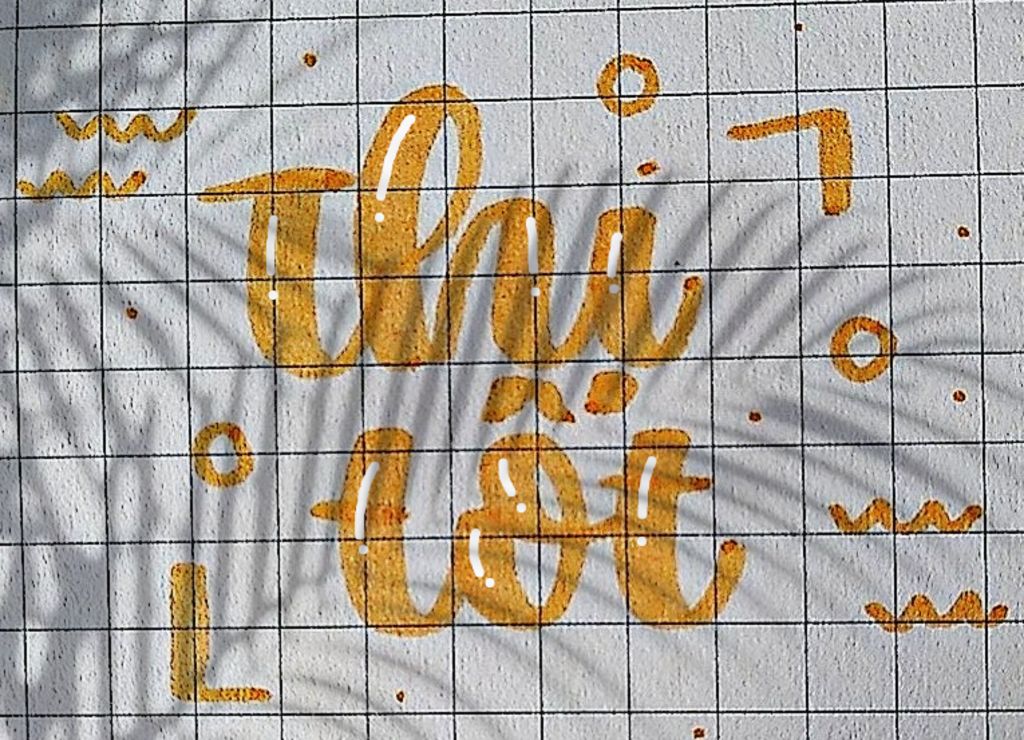 thi
tốt